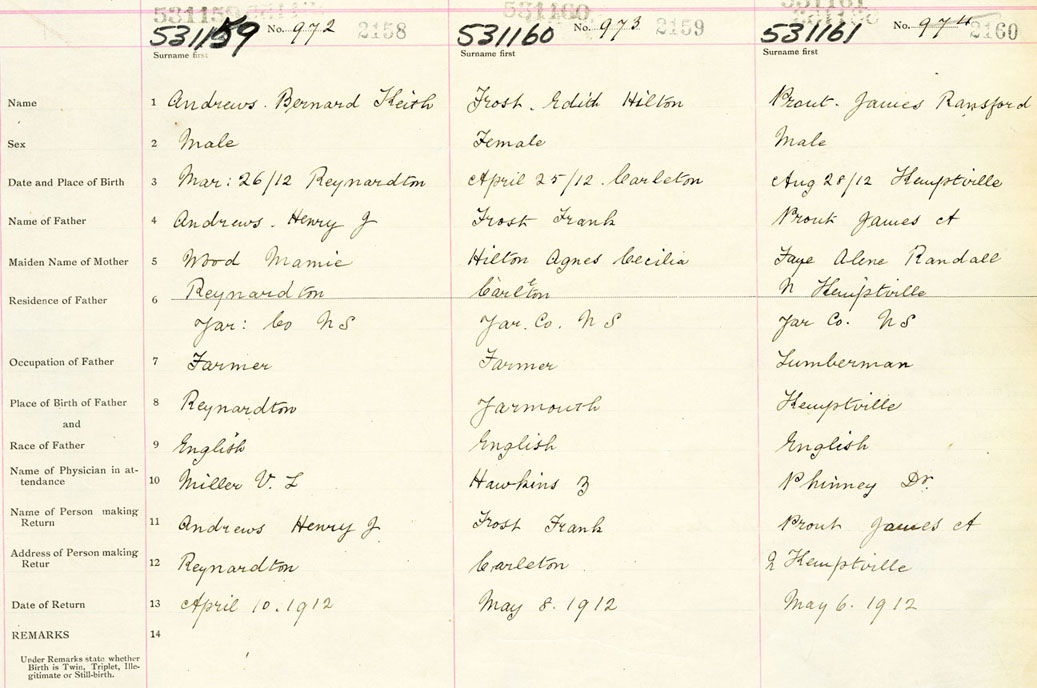 531159 531160 531161
531159 No. 972 2158 531160 No. 973 2159 531161 No. 974 2160
Surname first Surname first Surname first
Name 1 Andrews. Bernard Keith Frost. Edith Hilton Prout. James Ransford
Sex 2 Male Female Male
Date and Place of Birth 3 Mar: 26/12 Reynardton April 25/12. Carleton Aug 28/12 Kemptville
Name of Father 4 Andrews. Henry J Frost Frank Prout James A
Maiden Name of Mother 5 Wood Mamie Hilton Agnes Cecilia Faye Alene Randall
Residence of Father 6 Reynardton Carleton N Kemptville
Yar: Co NS Yar. Co. NS Yar Co. NS
Occupation of Father 7 Farmer Farmer Lumberman
Place of Birth of Father 8 Reynardton Yarmouth Kemptville
and
Race of Father 9 English English English
Name of Physician in at-
tendance 10 Miller V. L Hawkins Z Phinney Dr.
Name of Person making
Return 11 Andrews Henry J Frost Frank Prout James A
Address of Person making
Retur 12 Reynardton Carleton Kemptville
Date of Return 13 April 10. 1912 May 8. 1912 May 6. 1912
REMARKS 14
Under Remarks state whether
Birth is Twin, Triplet, Ille-
gitimate or Still-birth.